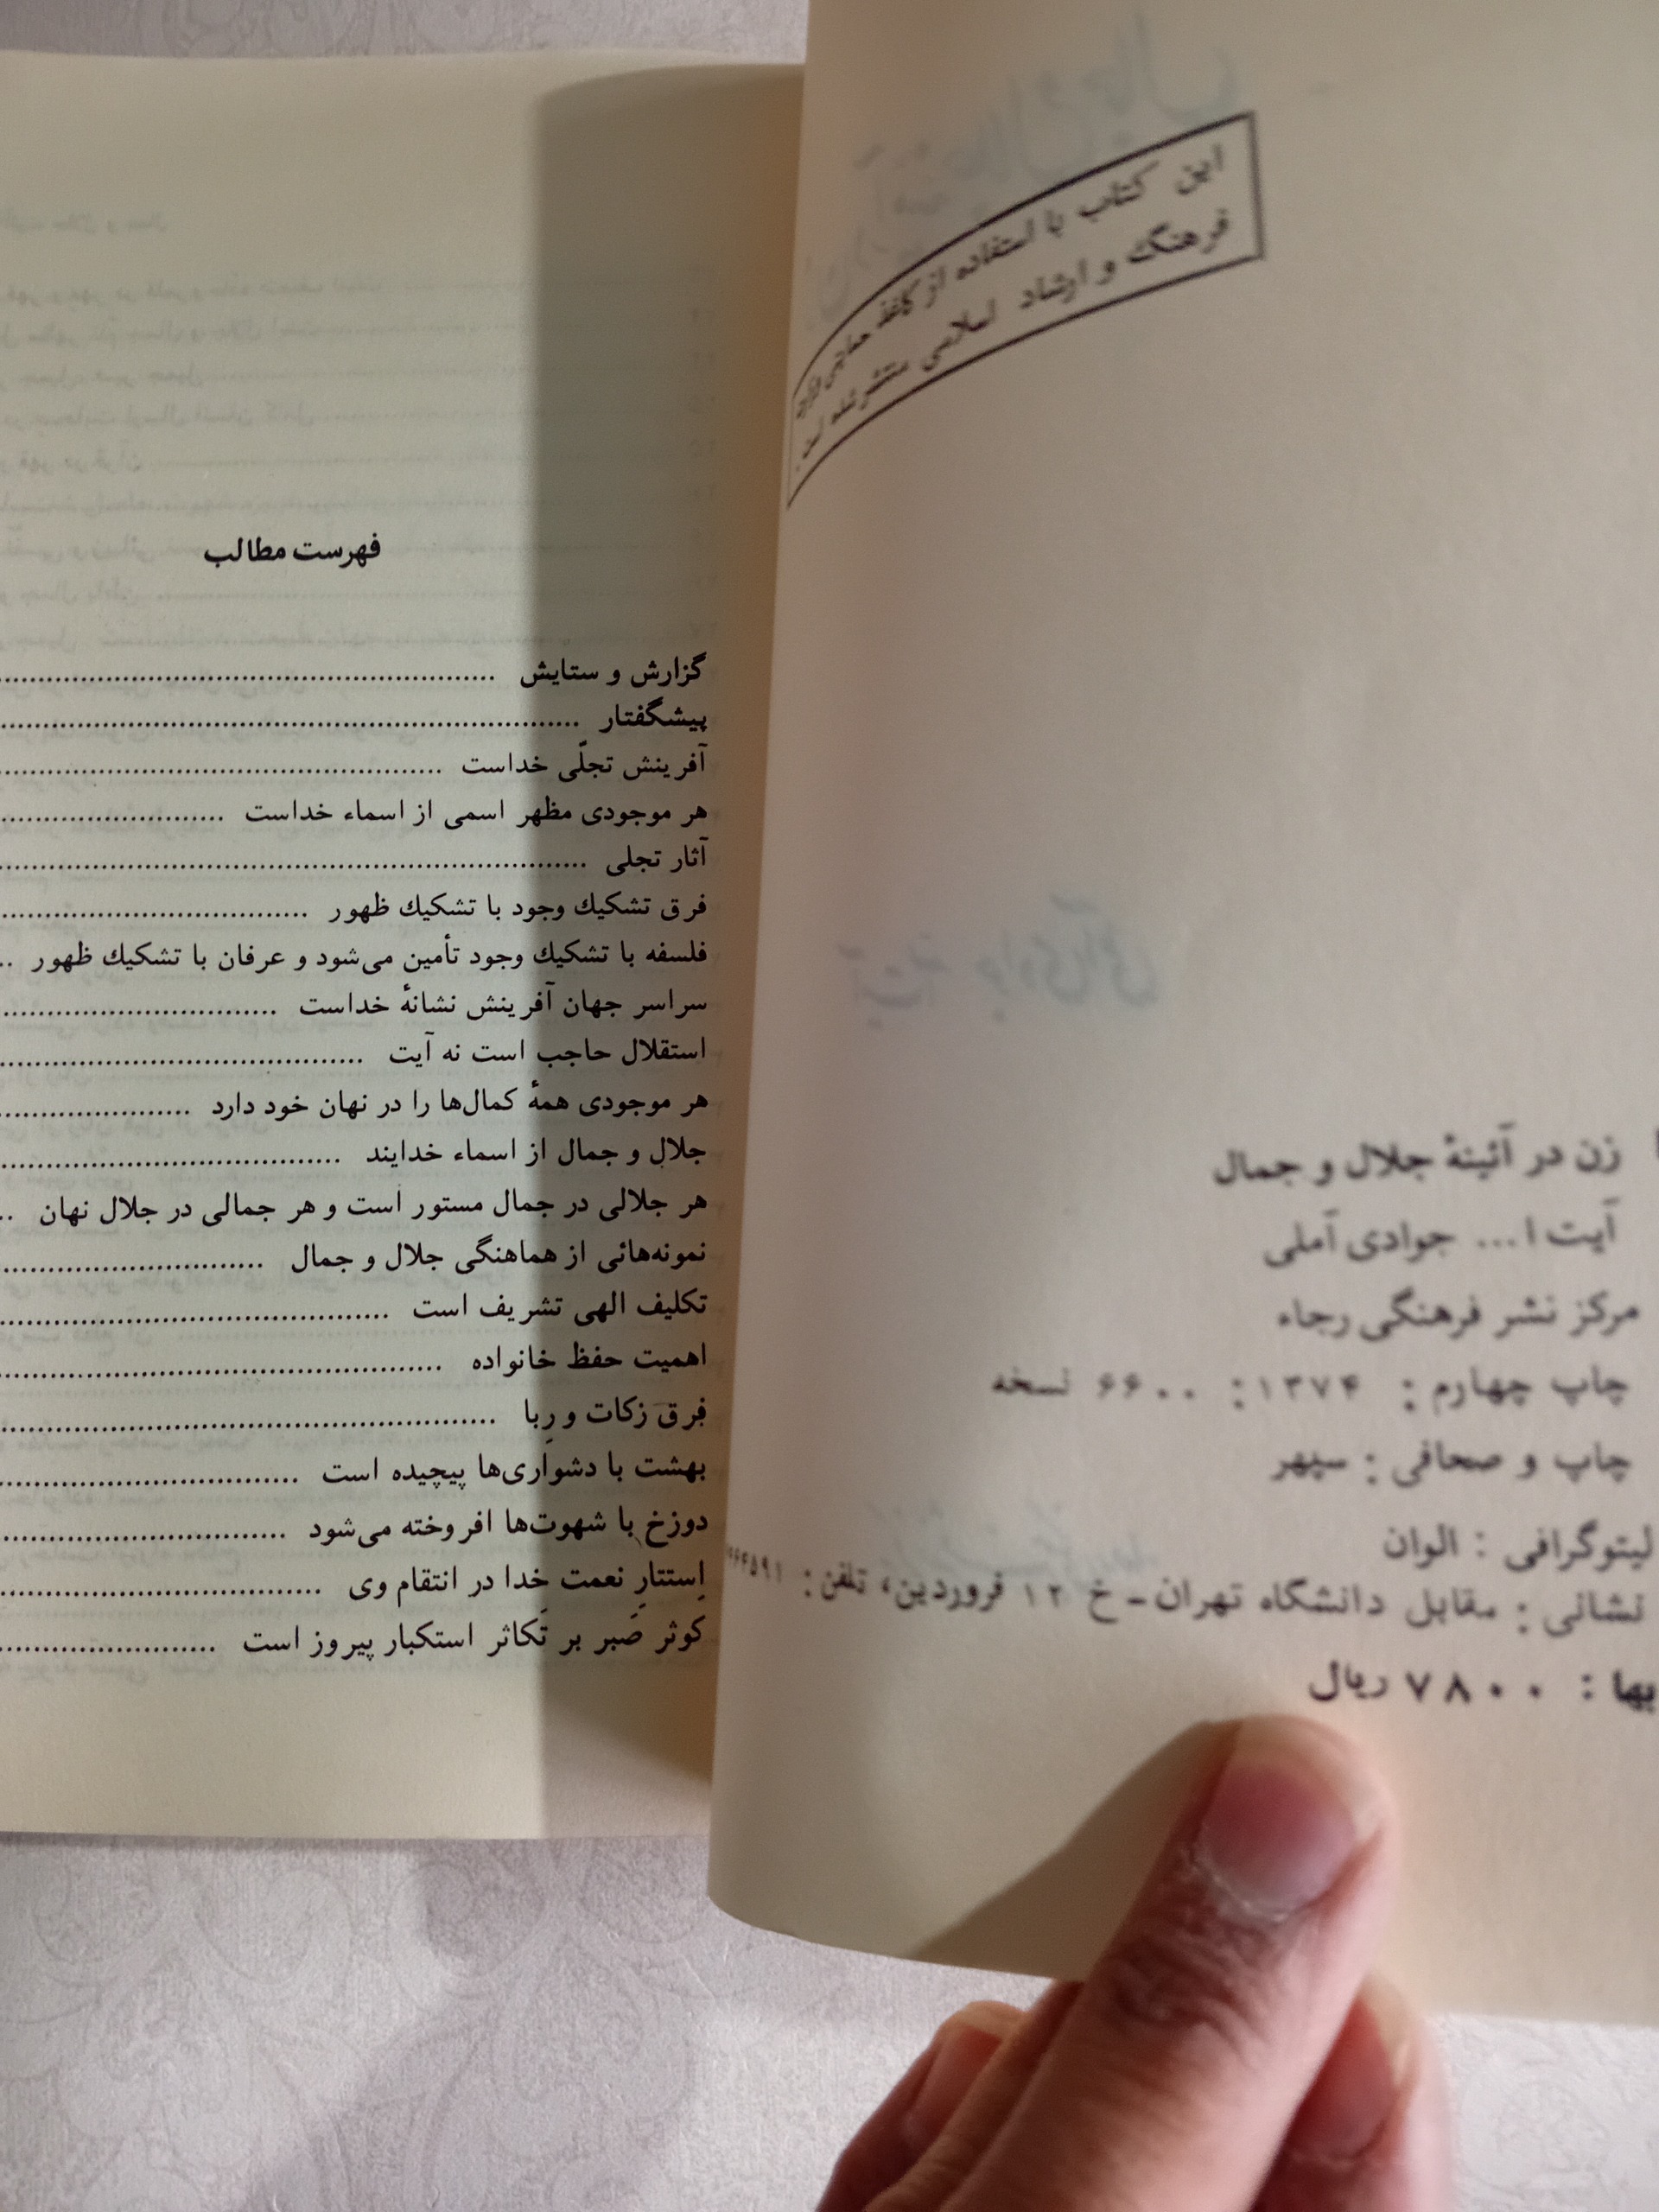 این کتاب با استفاده از کاغذ حمایتی وزارت
فرهنگ و ارشاد اسلامی منتشر شده است.
زن در آئینهٔ جلال و جمال
آیت ا... جوادی آملی
مرکز نشر فرهنگی رجاء
چاپ چهارم : ۱۳۷۴ : ۶۶۰۰ نسخه
چاپ و صحافی : سپهر
لیتوگرافی : الوان
نشانی : مقابل دانشگاه تهران ـ خ ۱۲ فروردین، تلفن :
بها : ۷۸۰۰ ریال
فهرست مطالب
گزارش و ستایش
پیشگفتار
آفرینش تجلّی خداست
هر موجودی مظهر اسمی از اسماء خداست
آثار تجلی
فرق تشکیك وجود با تشکیك ظهور
فلسفه با تشکیك وجود تأمین می‌شود و عرفان با تشکیك ظهور
سراسر جهان آفرینش نشانهٔ خداست
استقلال حاجب است نه آیت
هر موجودی همهٔ کمال‌ها را در نهان خود دارد
جلال و جمال از اسماء خدایند
هر جلالی در جمال مستور است و هر جمالی در جلال نهان
نمونه‌هائی از هماهنگی جلال و جمال
تکلیف الهی تشریف است
اهمیت حفظ خانواده
فرق زکات و رِبا
بهشت با دشواری‌ها پیچیده است
دوزخ با شهوت‌ها افروخته می‌شود
اِستتارِ نعمت خدا در انتقام وی
کوثر صَبر بر تَکاثر استکبار پیروز است